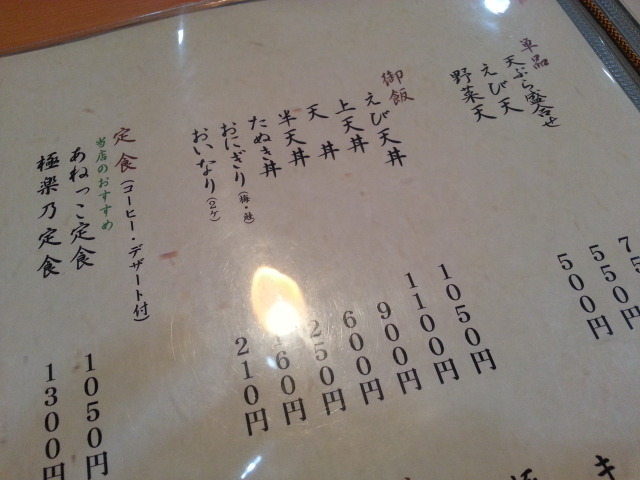 単品
天ぷら盛合せ
えび天 550円
野菜天 500円
御飯
えび天丼 1050円
上天丼 1100円
天丼 900円
半天丼 600円
たぬき丼 250円
おにぎり(梅・鮭) 160円
おいなり(2ケ) 210円
定食(コーヒー・デザート付)
当店のおすすめ
あねっこ定食 1050円
極楽乃定食 1300円